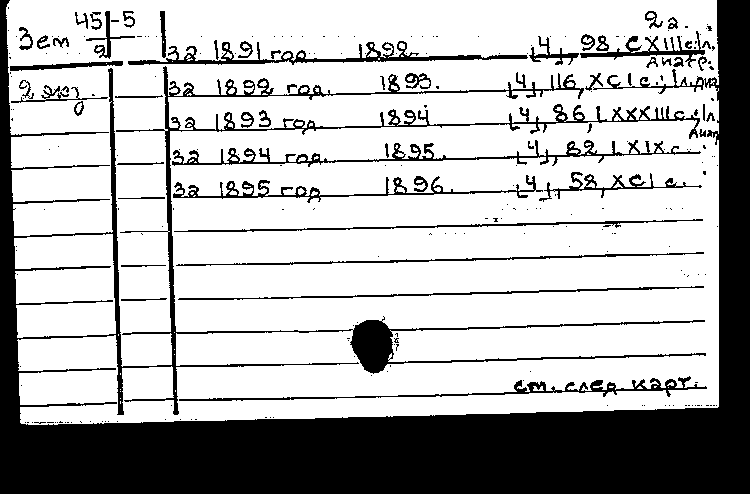 2а.
Зет 45/9 -5
за 1891 год. 1892. [4], 98, CXIII с; 1л. диагр.
2 экз. за 1892 год. 1893. [4], 116, XCI с.; 1л. диа
за 1893 год. 1894 [4], 86, LXXXIII с; 1л. диаг
за 1894 год. 1895. [4], 82, LXIX с.
за 1895 год 1896. [4], 58, XCI с.
см. след. карт.